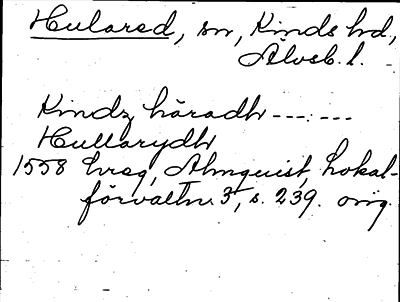 Hulared, sn, Kinds hd,
Älvsb. l.
Kindz häradh ------
Hullarydh
1558 hrsg, Almquist, Lokal-
förvaltn. 3, s. 239. orig.